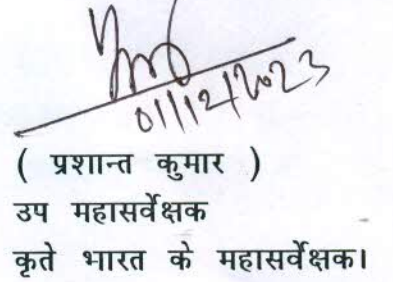 01/12/2023
( प्रशान्त कुमार )
उप महासर्वेक्षक
कृते भारत के महासर्वेक्षक।